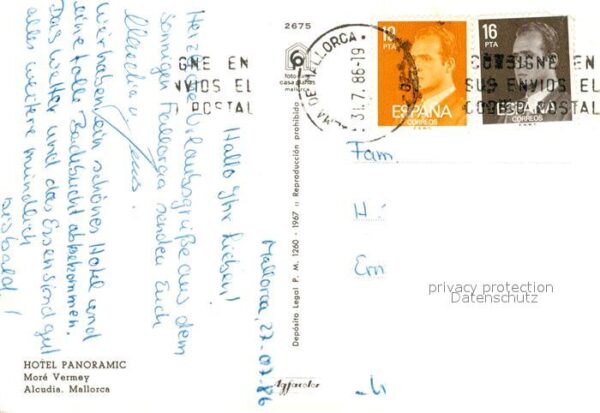 Mallorca, 27-07-86
Hallo Ihr Lieben!
Herzliche Urlaubsgrüße aus dem
sonnigen Mallorca senden Euch
Claudia Jens.
Wir haben ein schönes Hotel und
eine tolle Badebucht abbekommen.
Das Wetter und das Essen sind gut
alles weitere mündlich
bis bald!
2675
foto
casa planas
mallorca
Depósito Legal P. M. 1260 - 1967 :: Reproducción prohibida
Agfacolor
HOTEL PANORAMIC
Moré Vermey
Alcudia. Mallorca
MALLORCA
31.7.86-19
SIGNE EN
ENVIOS EL
POSTAL
CONSIGNE EN
SUS ENVIOS EL
CODIGO POSTAL
PTA
ESPAÑA
CORREOS
16
PTA
ESPAÑA
CORREOS
Fam
H
Ern
privacy protection
Datenschutz